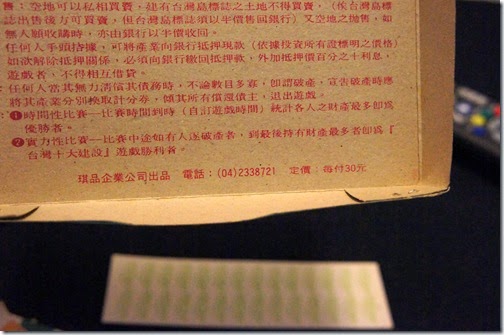 售：空地可以私相買賣，建有台灣島標誌之土地不得買賣，（俟台灣島標
誌出售後方可買賣，但台灣島標誌須以半價售回銀行）又空地之拋售，如
無人願收購時，亦由銀行以半價收回。
任何人手頭拮據，可將產業向銀行抵押現款（依據投資所有證標明之價格）
如欲解除抵押關係，必須向銀行撤回抵押款，外加抵押價百分之十利息，
遊戲者，不得相互借貸。
：任何人當其無力清償其債務時，不論數目多寡，即謂破產，宣告破產時應
將其產業分別換取計分券，傾其所有償還債主，退出遊戲。
：❶時間性比賽－比賽時間到時（自訂遊戲時間）統計各人之財產最多即為
優勝者。
❷實力性比賽－比賽中途如有人逐破產者，到最後持有財產最多者即為『
台灣十大建設』遊戲勝利者。
琪品企業公司出品　電話：(04)2338721　定價：每付30元